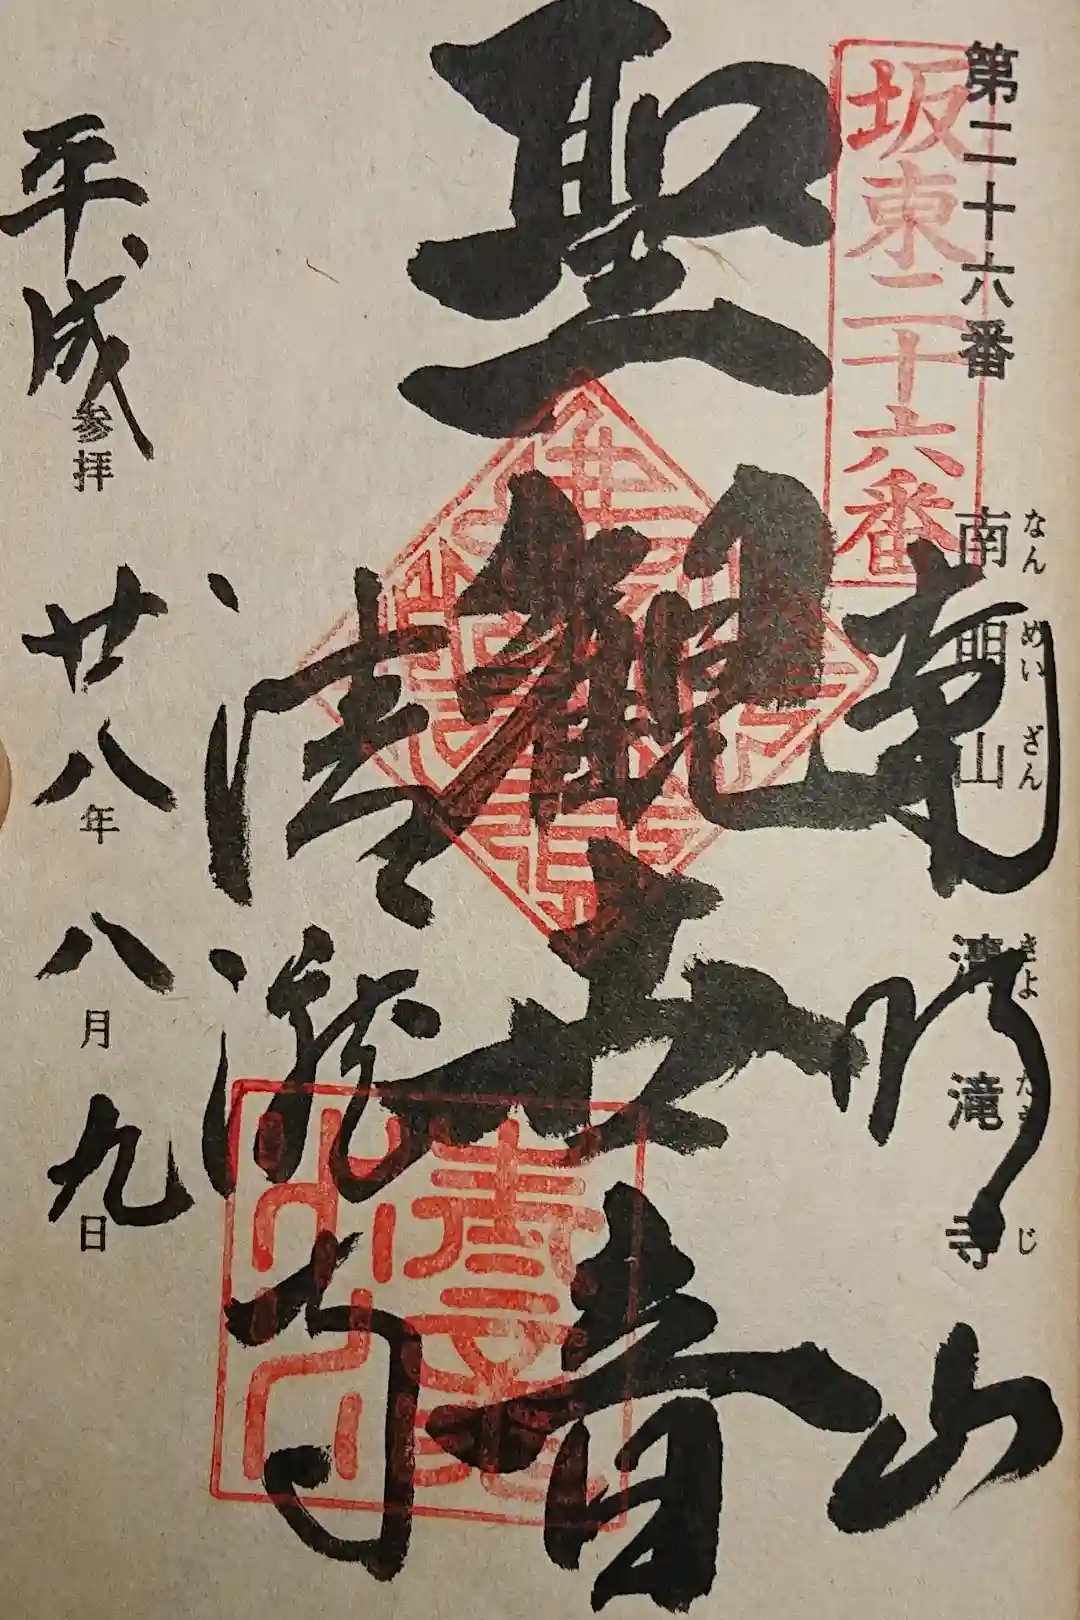 第二十六番 南明山 清滝寺
なん めい ざん きよ たき じ
坂東二十六番
南明山
聖観世音
清瀧寺
平成廿八年八月九日
参拝